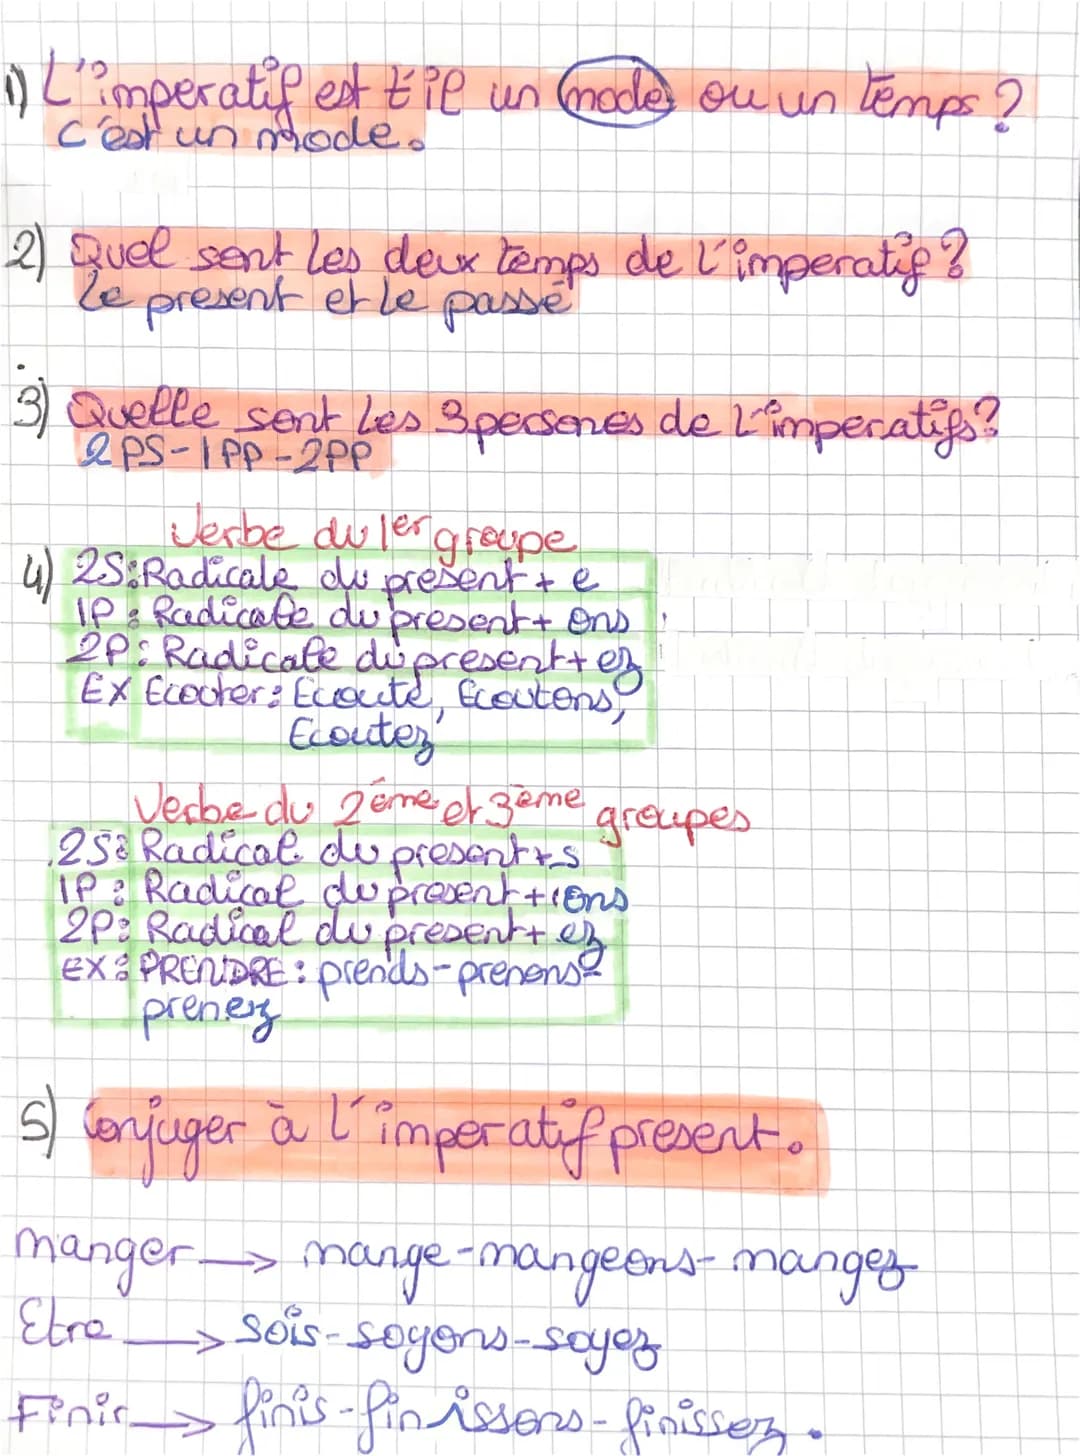 1) L'imperatif est t'il un mode ou un temps ?
c'est un mode.
2) Quel sont les deux temps de l'imperatif ?
Le present et le passé
3) Quelle sont les 3 persones de l'imperatifs ?
2PS-1PP-2PP
Verbe du 1er groupe
4) 2S: Radicale du present + e
1P : Radicale du present + ons
2P : Radicale du present + ez
EX Ecouter : Ecoute, Ecoutons,
Ecoutez
Verbe du 2ème et 3ème groupes
2S : Radical du present + s
1P : Radical du present + ons
2P : Radical du present + ez
EX : PRENDRE : prends - prenons -
prenez
5) Conjuger à l'imperatif present.
manger → mange - mangeons - mangez
Etre → sois - soyons - soyez
Finir → finis - finissons - finissez.